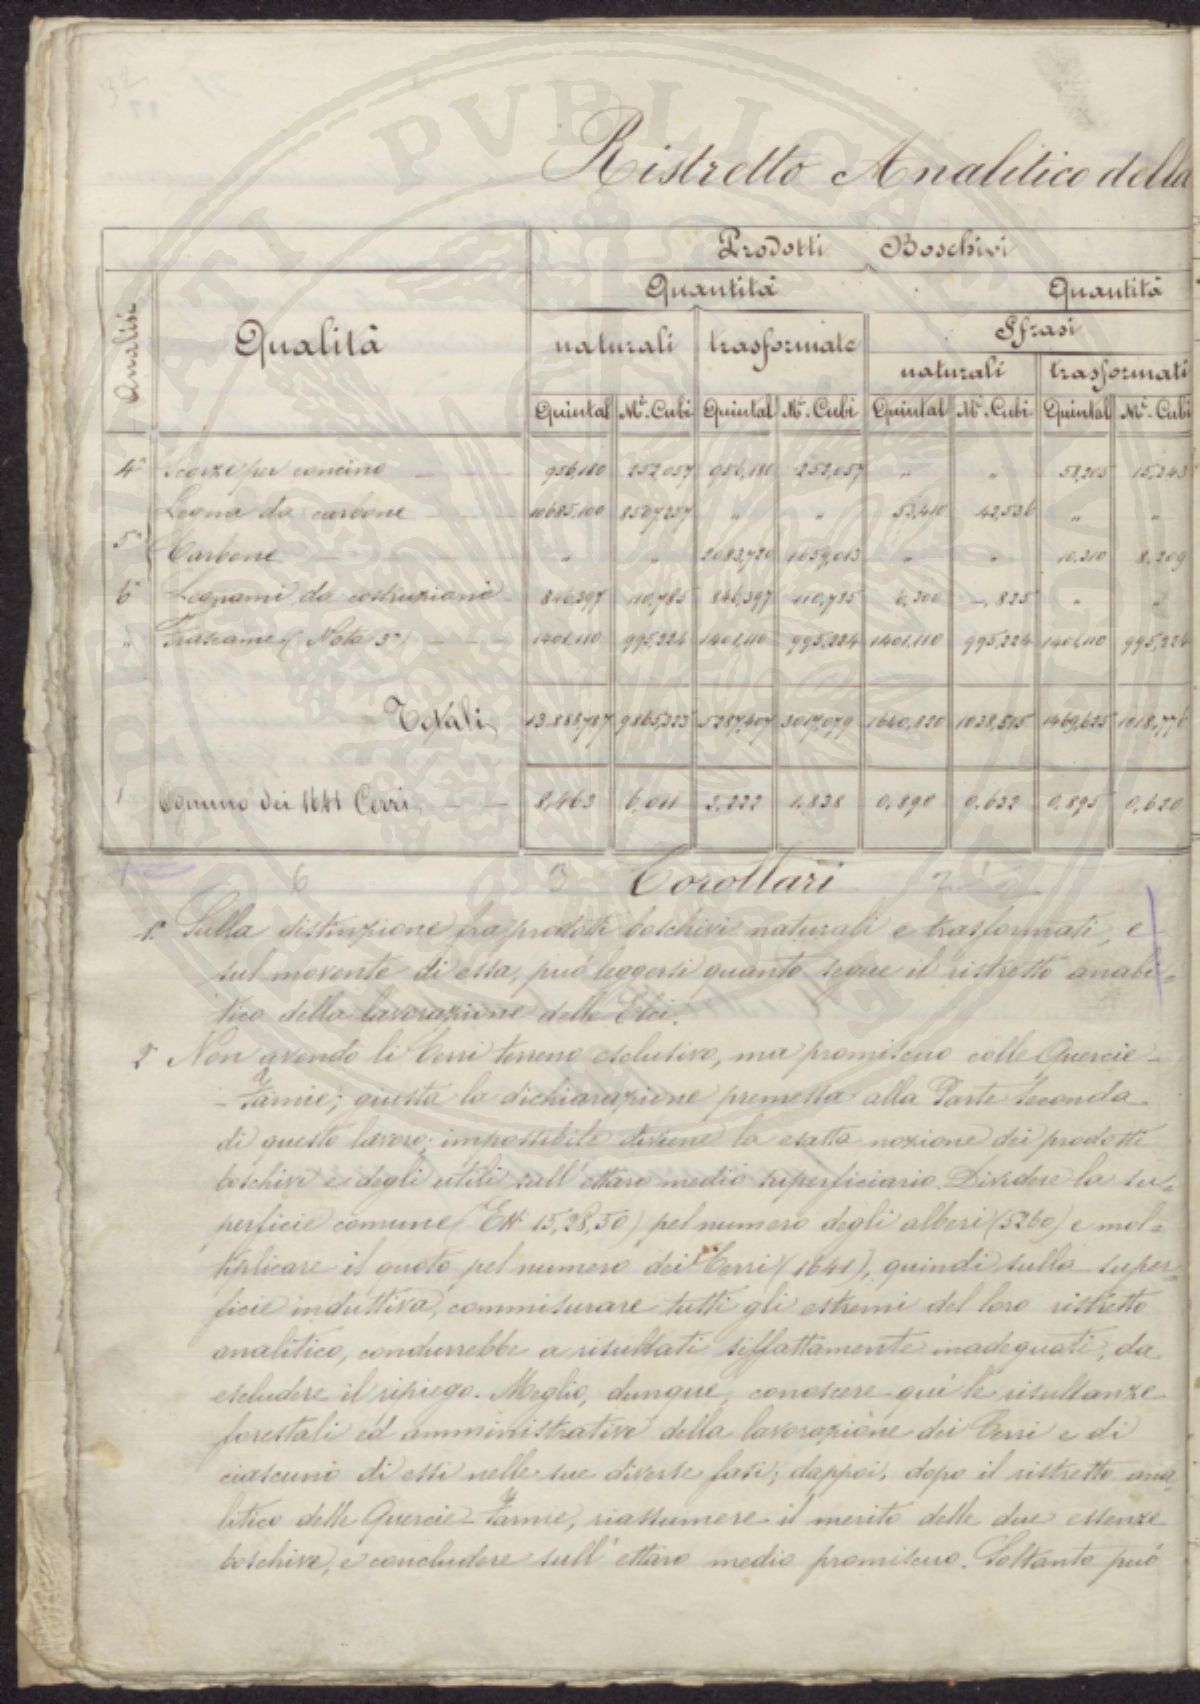 32
Ristretto Analitico della
Prodotti Boschivi
Quantità Quantità
Analisi Qualità naturali trasformate Sfrasi
naturali trasformati
Quintal Mt. Cubi Quintal Mt. Cubi Quintal Mt. Cubi Quintal Mt. Cubi
4ª Scorze per concino 956,180 252,057 956,180 252,057 " " 58,205 15,343
Legna da carbone 10685,100 8507,257 " " 53,410 42,536 " "
5ª Carbone " " 2083,720 1659,013 " " 10,310 8,209
6ª Legnami da costruzione 846,397 110,785 846,397 110,785 6,300 -,825 " "
" Frascame (Nota 3ª) 1401,110 995,224 1401,110 995,224 1401,110 995,224 1401,110 995,224
Totali 13.888,787 9865,323 5287,407 3017,079 1460,820 1038,585 1469,625 1018,776
1 Ognuno dei 1641 Cerri 8,463 6,011 3,222 1,838 0,890 0,632 0,895 0,620
Corollari
1º Sulla distinzione fra prodotti boschivi naturali e trasformati, e
sul movente di essa, può leggersi quanto segue il ristretto anali=
tico della lavorazione delle Elci.
2º Non avendo li Cerri terreno esclusivo, ma promiscuo colle Quercie-
-Farnie; giusta la dichiarazione premessa alla Parte Seconda
di questo lavoro; impossibile diviene la esatta nozione dei prodotti
boschivi e degli utili sull'ettaro medio superficiario. Dividere la su=
perficie comune (Ett 15,28,50) pel numero degli alberi (5260) e mol=
tiplicare il quoto pel numero dei Cerri (1641), quindi sulla super=
ficie induttiva, commisurare tutti gli estremi del loro ristretto
analitico, condurrebbe a risultati siffattamente inadeguati, da
escludere il ripiego. Meglio, dunque, conoscere quì le risultanze
forestali ed amministrative della lavorazione dei Cerri e di
ciascuno di essi nelle sue diverse fasi; dappoi, dopo il ristretto ana=
litico delle Quercie-Farnie, riassumere il merito delle due essenze
boschive, e concludere sull'ettaro medio promiscuo. Soltanto può